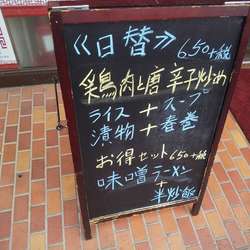 ≪日替≫ 650+税
鶏肉と唐辛子炒め
ライス+スープ
漬物+春巻
お得セット 650+税
味噌ラーメン
+
半炒飯